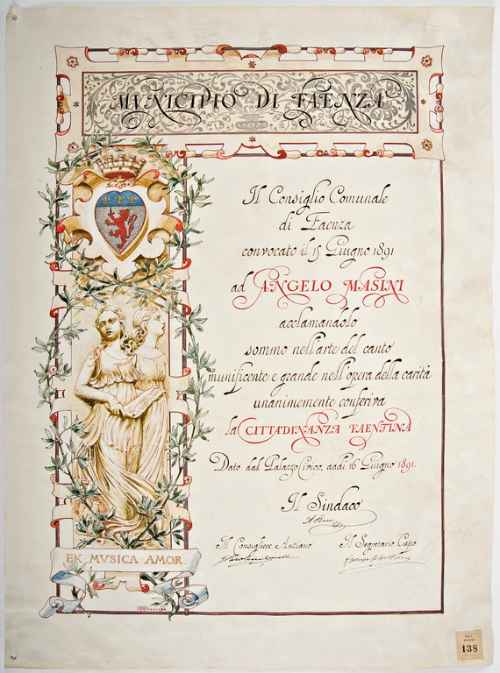 MVNICIPIO DI FAENZA
Il Consiglio Comunale
di Faenza
convocato il 15 Giugno 1891
ad ANGELO MASINI
acclamandolo
sommo nell'arte del canto
munificente e grande nell'opera della carità
unanimemente conferiva
la CITTADINANZA FAENTINA
Dato dal Palazzo Civico, addì 16 Giugno 1891.
Il Sindaco
Il Consigliere Anziano Il Segretario Capo
EX MVSICA AMOR
138